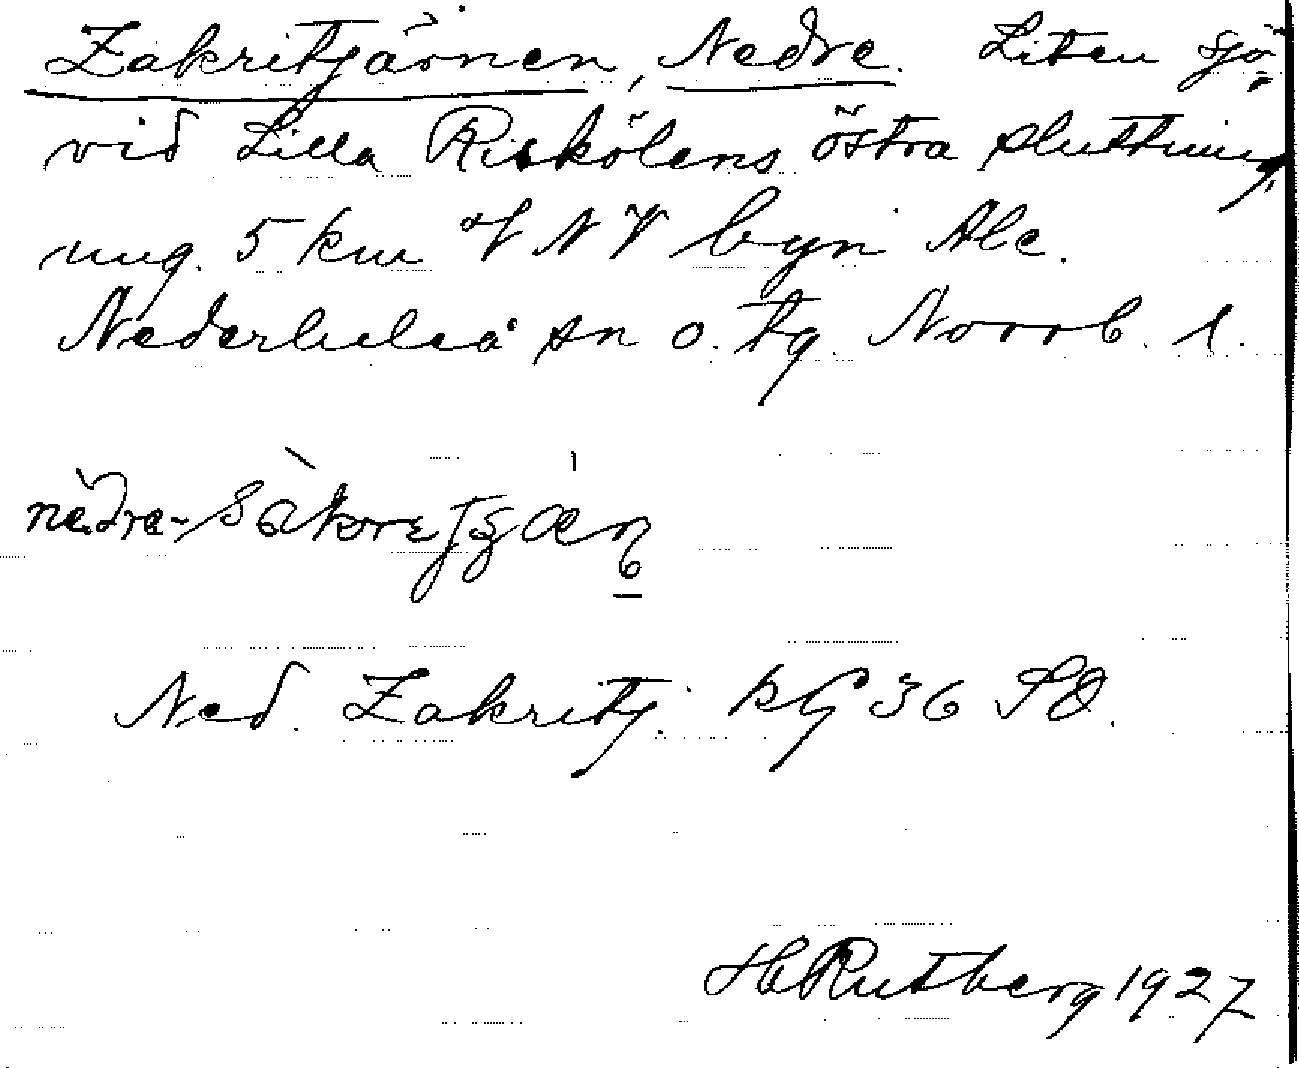 Zakritjärnen, Nedre. Liten sjö
vid Lilla Riskölens östra sluttning,
ung. 5 km NV byn Ale.
Nederluleå sn o. tg. Norrb. l.
Ned. Zakritj. kg 36 SO.
H Rutberg 1927